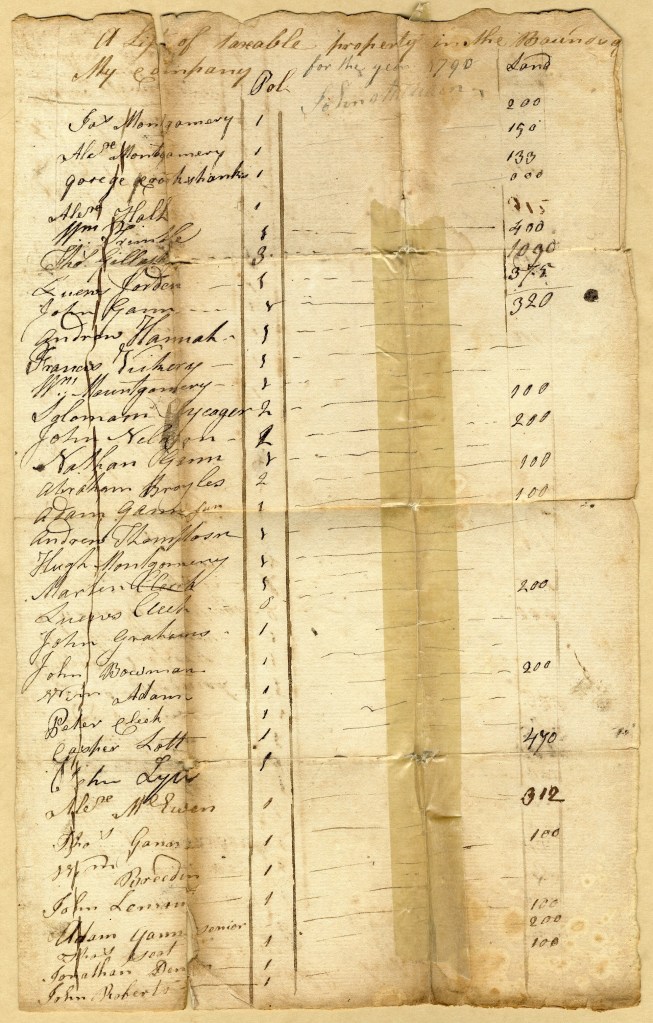 A List of taxable property in the Bounds of
My Company for the year 1790 Land
Pol
Jas Montgomery 1 200
Alexr Montgomery 1 150
gorege 1 133
Alexr 1
Wm Trimble 1 400
Thos 3 1000
Luews Jorden 1 375
John Gann 1 320
Andrew Hannah 1
Frances Vickery 1
Wm Mountgomery 1 100
Solomam Yeager 2 200
John Nelson 2
Nathan Gann 1 100
Abraham Broyles 2
Adam Gann 1 100
Andrew Thompson 1
Hugh Montgomery 1
Martin Cleek 1 200
Luews Cleek 0
John Grahams 1
John Bowman 1 200
Wm Adam 1
Peter Cleek 1
Casper Lott 1 470
John 1
Alexr McEwen 1 312
Thos Gann 1 100
Wm Breedin 1
John Lemm 1 100
Adam Gann senior 200
1 100
Jonathan 1
John Roberts 1